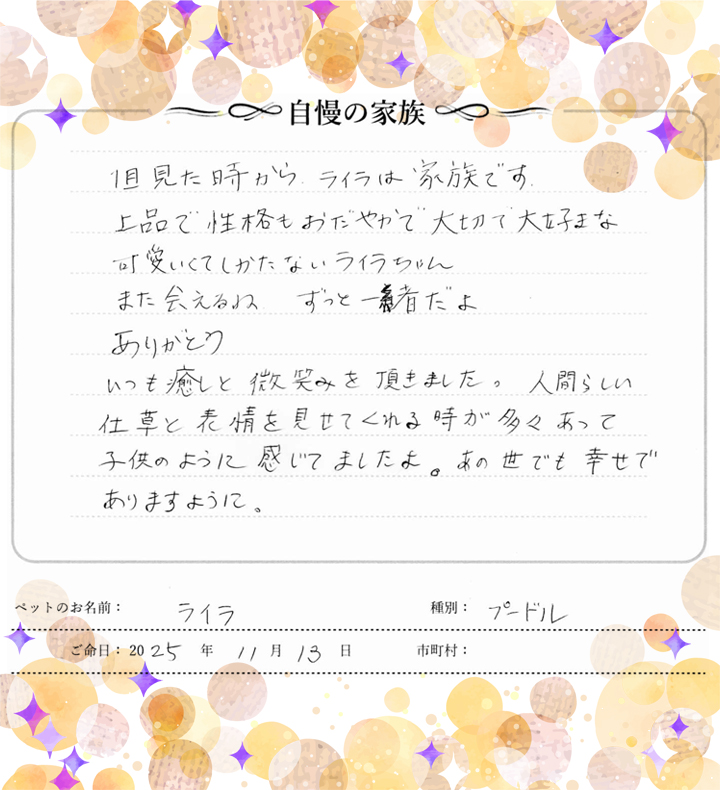 自慢の家族
1目見た時から ライラは 家族です.
上品で 性格も おだやかで 大切で 大好きな
可愛いくてしかたない ライラちゃん
また 会えるね ずっと 一緒だよ
ありがとう
いつも 癒しと 微笑みを 頂きました。 人間らしい
仕草と 表情を見せてくれる 時が 多々 あって
子供のように 感じて ましたよ。 あの世でも 幸せで
ありますように。
ペットのお名前： ライラ 種別： プードル
ご命日： 2025 年 11 月 13 日 市町村：